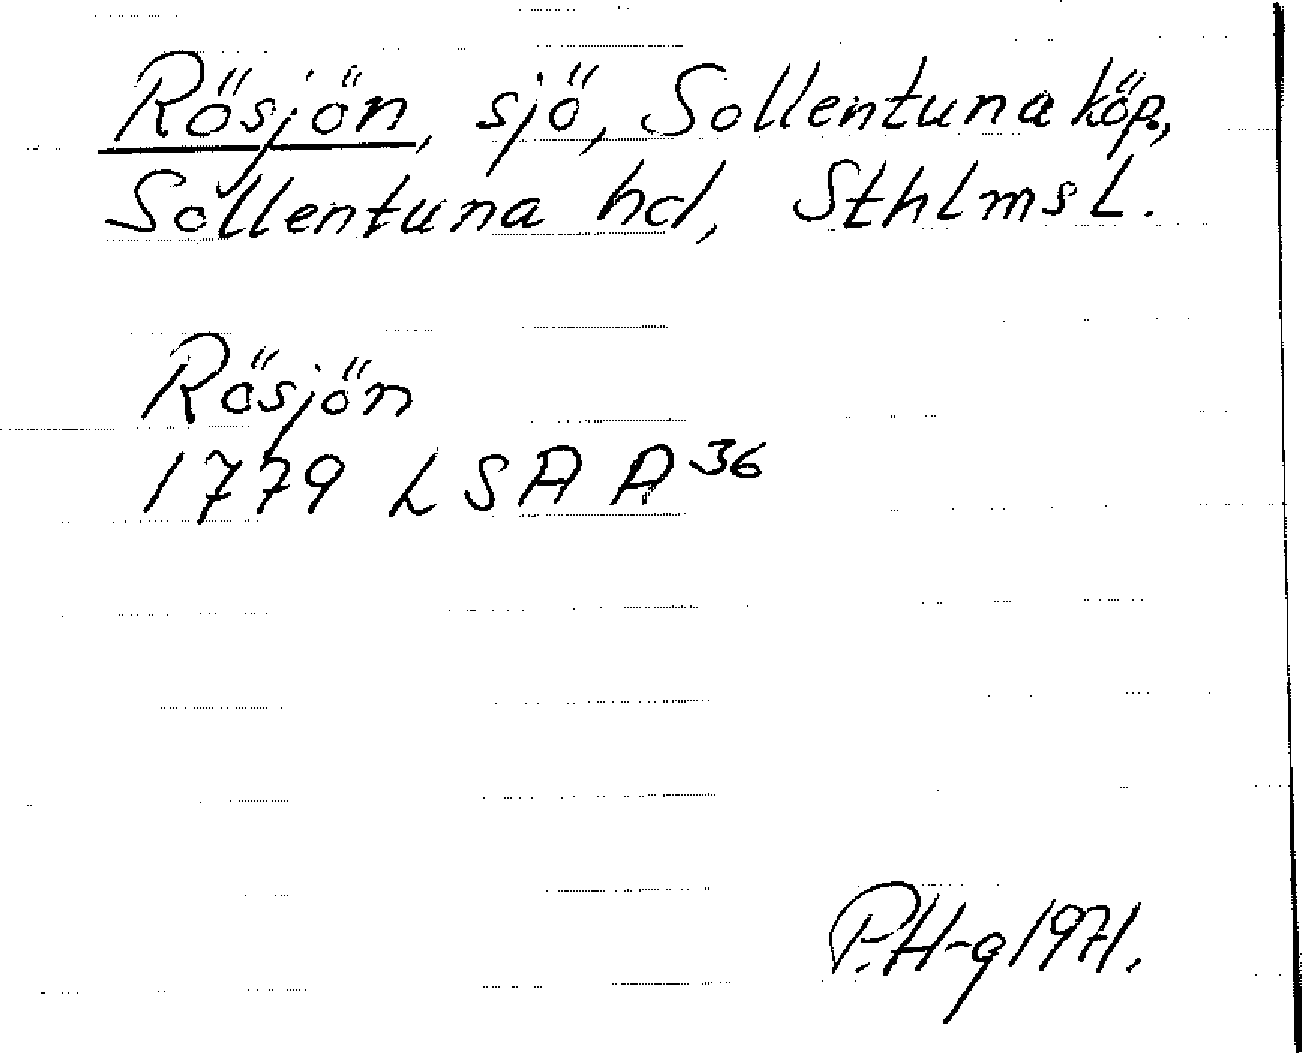 Rösjön, sjö, Sollentuna köp.,
Sollentuna hd, Sthlms L.
Rösjön
1779 LSA A36
P.H-g 1971.